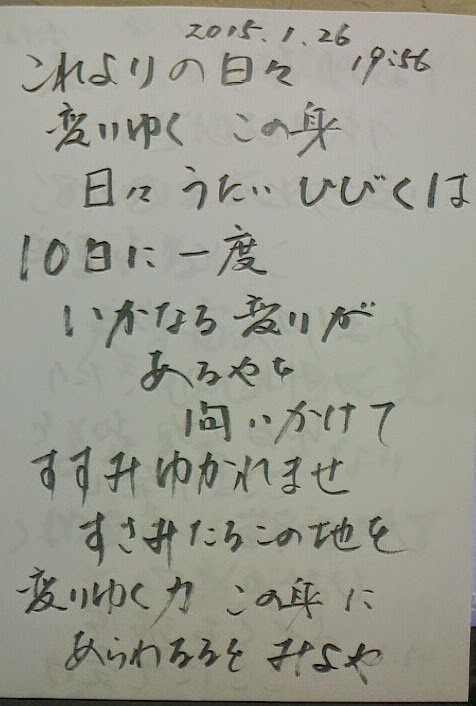 2015.1.26
19:56
これよりの日々
変りゆく この身
日々 うたい ひびくは
10日に一度
いかなる変りが
あるやを
問いかけて
すすみゆかれませ
すさみたるこの地を
変りゆく力 この身に
あらわるるを みよや